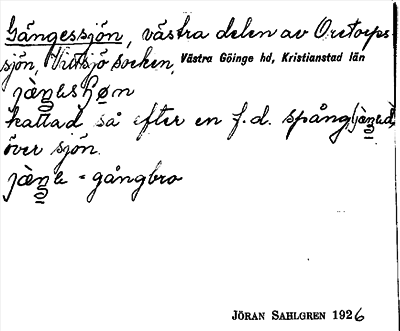 Gängessjön, västra delen av Oretorps-
sjön, Vittsjö socken, Västra Göinge hd, Kristianstad län
kallad så efter en f.d. spång
över sjön.
= gångbro
JÖRAN SAHLGREN 1926